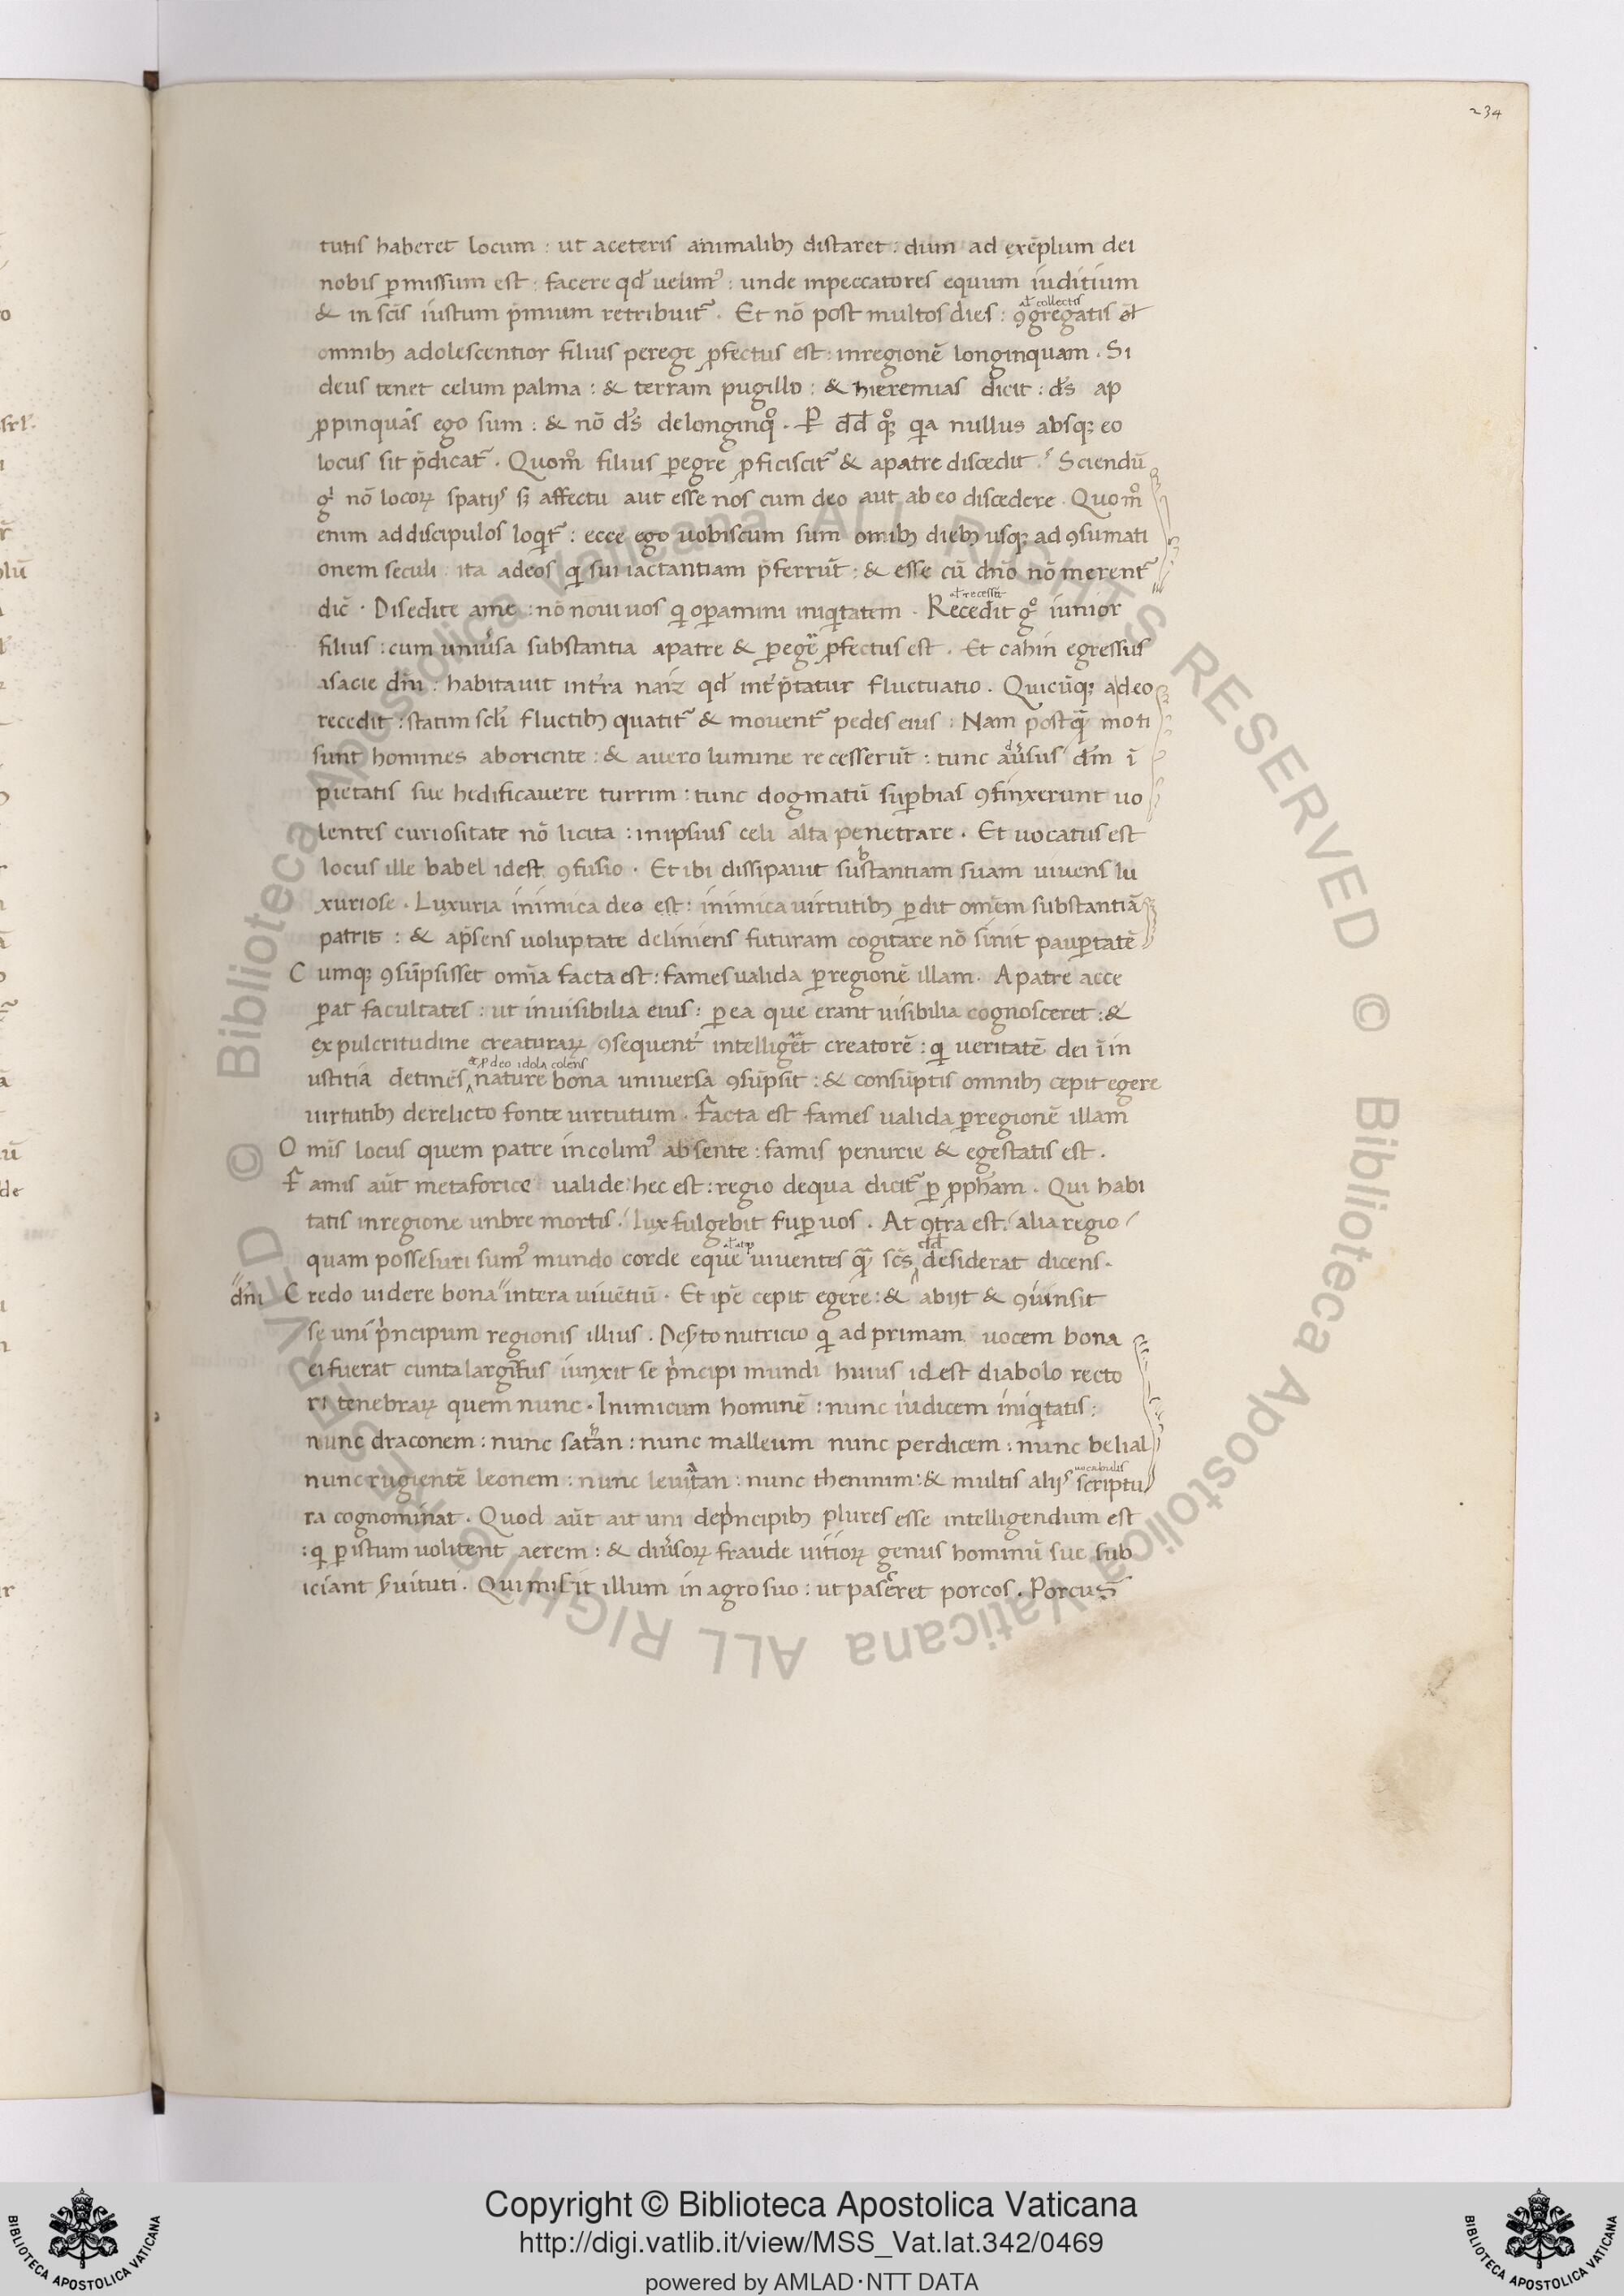 234
tutis haberet locum : ut aceteris animalibꝫ distaret : dum ad exēplum dei
nobis ꝑmissum est : facere qđ uelimꝰ : unde inpeccatores equum iuditium
& in scīs iustum p̄mium retribuit᷑ . Et nō post multos dies : ꝯgregatis
at collectis
omnibꝫ adolescentior filius perege ꝓfectus est : inregionē longinquam . Si
deus tenet celum palma : & terram pugillo : & hieremias dicit : dˉs ap
ꝓpinquās ego sum : & nō dˉs delonginqͦ . ꝑ dđ qꝫ qia nullus absqꝫ eo
locus sit p̄dicat᷑ . Quomͦ filius ꝑegre ꝓficiscit᷑ & apatre discedit . Sciendū
gͥ nō locoꝝ spatijs sꝫ affectu aut esse nos cum deo aut ab eo discedere . Quomͦ
enim addiscipulos loqͥt᷑ : ecce ego uobiscum sum omībꝫ diebꝫ usqꝫ ad ꝯsumati
onem seculi : ita adeos qͥ sui iactantiam p̄ferrūt : & esse cū dn̄o nō merent᷑
dic̄ . Disedite ame : nō noui uos qͥ oꝑamini iniqͥtatem . Recedit gͦ iunior
at recessit
filius : cum uniūsa substantia apatre & ꝑege ꝓfectus est . Et cahin egressus
afacie dn̄i : habitauit int̄ra naiz qđ int̄p̄tatur fluctuatio . Quicūqꝫ adeo
recedit : statim scl̄i fluctibꝫ quatit᷑ & mouent᷑ pedes eius : Nam postqͣ̄ moti
sunt homines aboriente : & auero lumine recesserūt : tunc aduͥsus dn̄m ī
pietatis sue hedificauere turrim : tunc dogmatū suꝑbias ꝯfinxerunt uo
lentes curiositate nō licita : inipsius celi alta penetrare . Et uocatus est
locus ille babel idest ꝯfusio . Et ibi dissipauit substantiam suam uiuens lu
xuriose . Luxuria inimica deo est : inimica uirtutibꝫ ꝑdit omēm substantiā
patris : & ap̄sens uoluptate deliniens futuram cogitare nō sinit pauꝑtatē
Cumqꝫ ꝯsūpsisset omīa facta est : fames ualida ꝑregionē illam . Apatre acce
ꝑat facultates : ut inuisibilia eius : ꝑ ea que erant uisibilia cognosceret : &
ex pulcritudine creaturaꝝ ꝯsequent̄ intelligēt creatorē : qͥ veritatē dei ī in
ustitia detinēs nature bona universa ꝯsūpsit : & consūptis omnibꝫ cepit egere
ꝓ deo idola colens
uirtutibꝫ derelicto fonte uirtutum . Facta est fames ualida ꝑregionē illam
Omīs locus quem patre incolimꝰ absente : famis penurie & egestatis est .
Famis aūt metaforice ualide : hec est : regio dequa dicit᷑ ꝑ ꝓpħam . Qui habi
tatis inregione unbre mortis . lux fulgebit suꝑ uos . At ꝯtra est . alia regio
quam possesuri sumꝰ mundo corde eque uiuentes qͣ̄ scs̄ desiderat dicens .
dđ
dn̄i Credo uidere bona intera uiuētiū . Et ip̄e cepit egere : & abijt & ꝯuinsit
se uni pͥncipum regionis illius . Desꝰto nutricio qͥ ad primam uocem bona
ei fuerat cunta largitus iunxit se pͥncipi mundi huius idest diabolo recto
ri tenebraꝝ quem nunc . Inimicum hominē : nunc iudicem iniqͥtatis :
nunc draconem : nunc satan : nunc malleum nunc perdicem : nunc belial
nunc rugientē leonem : nunc leuitan : nunc theninim : & multis alijs scriptu
uocabulis
ra cognominat . Quod aūt ait uni depͥncipibꝫ plures esse intelligendum est
: qͥ ꝑ istum uolitent aerem : & diuͥsoꝝ fraude uitioꝝ genus hominū sue sub
iciant sͥuituti . Qui misit illum in agro suo : ut pasceret porcos . Porcus
© Biblioteca Apostolica Vaticana ALL RIGHTS RESERVED © Biblioteca Apostolica Vaticana ALL RIGHTS RESERVED
Copyright © Biblioteca Apostolica Vaticana
http://digi.vatlib.it/view/MSS_Vat.lat.342/0469
powered by AMLAD·NTT DATA
BIBLIOTECA APOSTOLICA VATICANA
BIBLIOTECA APOSTOLICA VATICANA